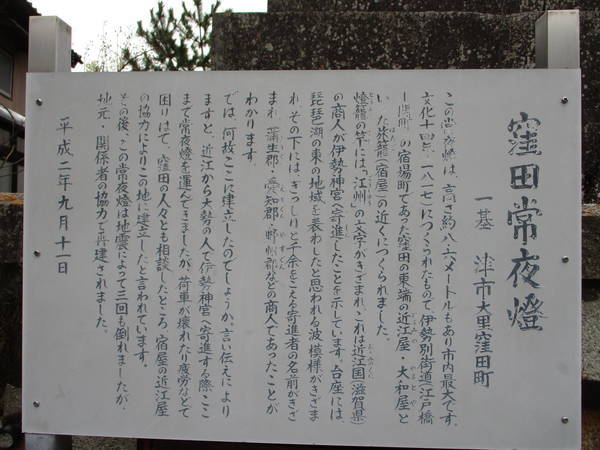 窪田常夜燈
一基　津市大里窪田町
この常夜燈は、高さ約八・六メートルもあり市内最大です。
文化十四年（一八一七）につくられたもので伊勢別街道（江戸橋
ー関）の宿場町であった窪田の東端の近江屋・大和屋と
いった旅籠（宿屋）の近くにつくられました。
燈籠の竿には「江州」の文字がきざまれ、これは近江国（滋賀県）
の商人が伊勢神宮へ寄進したことを示しています。台座には
琵琶湖の東の地域を表わしたと思われる波模様がきざま
れ、その下には、ぎっしりと千余をこえる寄進者の名前がきざ
まれ、蒲生郡・愛知郡・野州郡などの商人であったことが
わかります。
では、何故ここに建立したのでしょうか。言い伝えにより
ますと、近江から大勢の人で伊勢神宮へ寄進する際、ここ
まで常夜燈を運んできましたが、荷車が壊れたり疲労などで
困りはて、窪田の人々とも相談したところ、宿屋の近江屋
の協力によりこの地に建立したと言われています。
その後、この常夜燈は地震によって三回も倒れましたが、
地元・関係者の協力で再建されました。
平成二年九月十一日